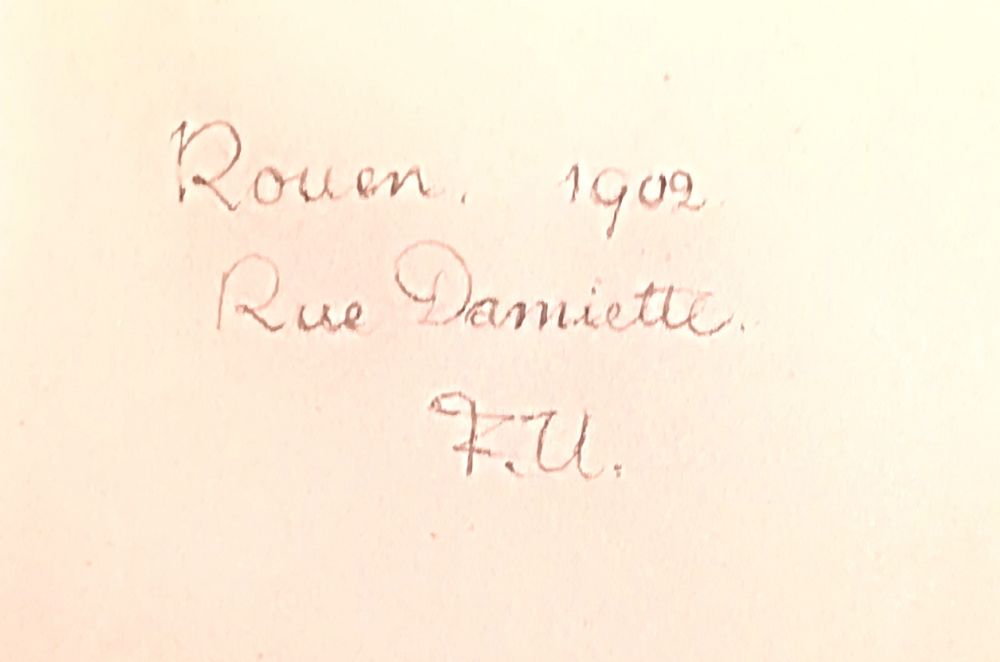 Rouen. 1902
Rue Damiette.
F.U.